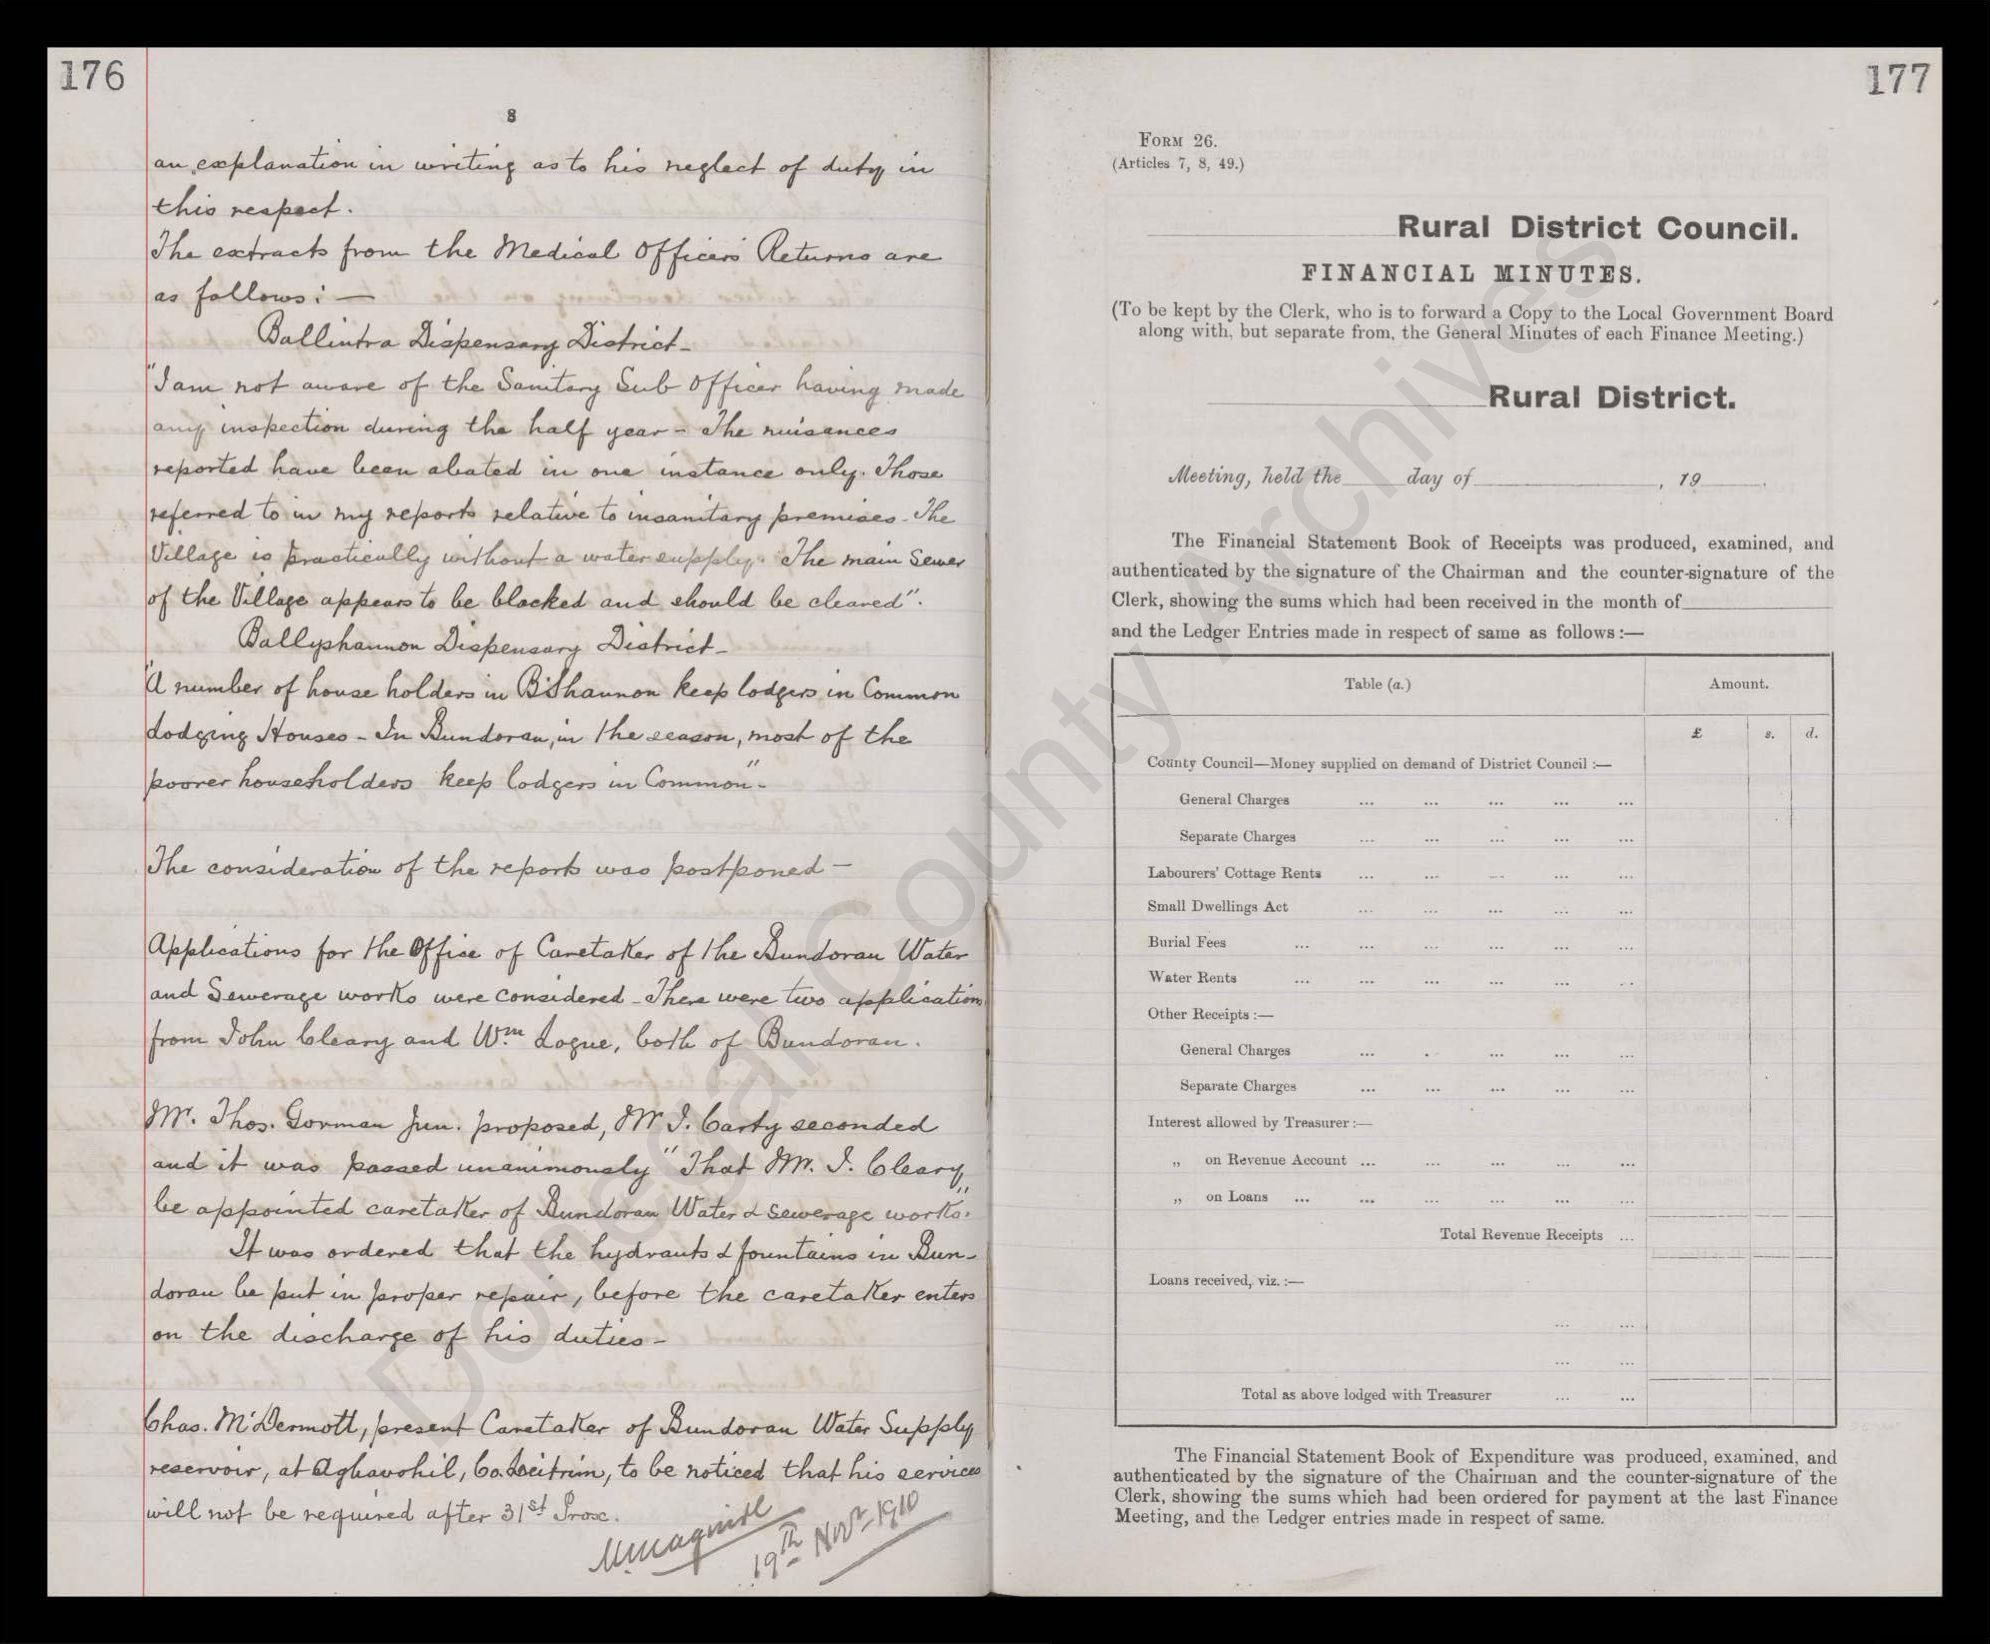 176
8
an explanation in writing as to his neglect of duty in
this respect.
The extracts from the Medical Officers' Returns are
as follows: —
Ballintra Dispensary District_
"I am not aware of the Sanitary Sub Officer having made
any inspection during the half year - The nuisances
reported have been abated in one instance only. Those
referred to in my reports relative to insanitary premises. The
Village is practically without a water supply. The main sewer
of the Village appears to be blocked and should be cleared".
Ballyshannon Dispensary District_
"A number of house holders in B'Shannon keep lodgers in Common
Lodging Houses - In Bundoran, in the season, most of the
poorer householders keep lodgers in Common".
The consideration of the reports was postponed —
Applications for the Office of Caretaker of the Bundoran Water
and Sewerage works were considered - There were two applications
from John Cleary and Wm. Logue, both of Bundoran.
Mr. Thos. Gorman Jun. proposed, Mr J. Carty seconded
and it was passed unanimously "That Mr. J. Cleary
be appointed caretaker of Bundoran Water & Sewerage works".
It was ordered that the hydrants & fountains in Bun-
doran be put in proper repair, before the caretaker enters
on the discharge of his duties -
Chas. McDermott, present Caretaker of Bundoran Water Supply
reservoir, at Aghavohil, Co. Leitrim, to be noticed that his services
will not be required after 31st Prox.
19th Novr 1910
177
Form 26.
(Articles 7, 8, 49.)
Rural District Council.
FINANCIAL MINUTES.
(To be kept by the Clerk, who is to forward a Copy to the Local Government Board
along with, but separate from, the General Minutes of each Finance Meeting.)
Rural District.
Meeting, held the ____ day of ____________, 19____.
The Financial Statement Book of Receipts was produced, examined, and
authenticated by the signature of the Chairman and the counter-signature of the
Clerk, showing the sums which had been received in the month of____________
and the Ledger Entries made in respect of same as follows :—
Table (a.) Amount.
£ s. d.
County Council—Money supplied on demand of District Council :—
General Charges ... ... ... ... ...
Separate Charges ... ... ... ... ...
Labourers' Cottage Rents ... ... ... ... ...
Small Dwellings Act ... ... ... ... ...
Burial Fees ... ... ... ... ... ...
Water Rents ... ... ... ... ... ...
Other Receipts :—
General Charges ... ... ... ... ...
Separate Charges ... ... ... ... ...
Interest allowed by Treasurer :—
„ on Revenue Account ... ... ... ... ...
„ on Loans ... ... ... ... ... ...
Total Revenue Receipts ...
Loans received, viz. :—
... ...
... ...
Total as above lodged with Treasurer ... ...
The Financial Statement Book of Expenditure was produced, examined, and
authenticated by the signature of the Chairman and the counter-signature of the
Clerk, showing the sums which had been ordered for payment at the last Finance
Meeting, and the Ledger entries made in respect of same.
Donegal County Archives